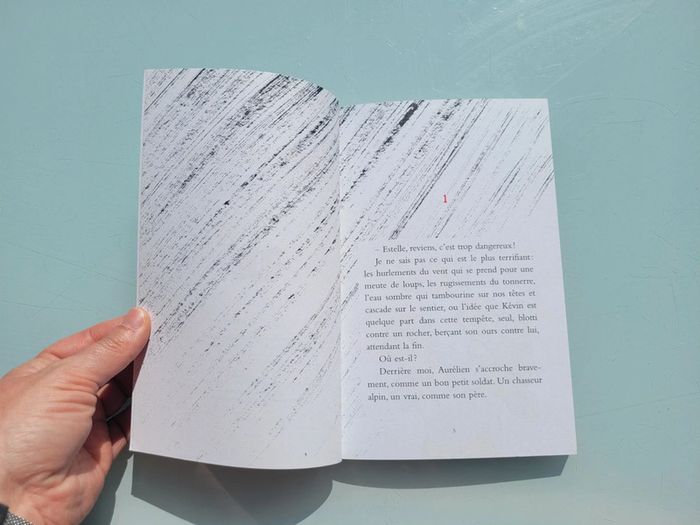 1
– Estelle, reviens, c'est trop dangereux !
Je ne sais pas ce qui est le plus terrifiant :
les hurlements du vent qui se prend pour une
meute de loups, les rugissements du tonnerre,
l'eau sombre qui tambourine sur nos têtes et
cascade sur le sentier, ou l'idée que Kévin est
quelque part dans cette tempête, seul, blotti
contre un rocher, berçant son ours contre lui,
attendant la fin.
Où est-il ?
Derrière moi, Aurélien s'accroche brave-
ment, comme un bon petit soldat. Un chasseur
alpin, un vrai, comme son père.
5